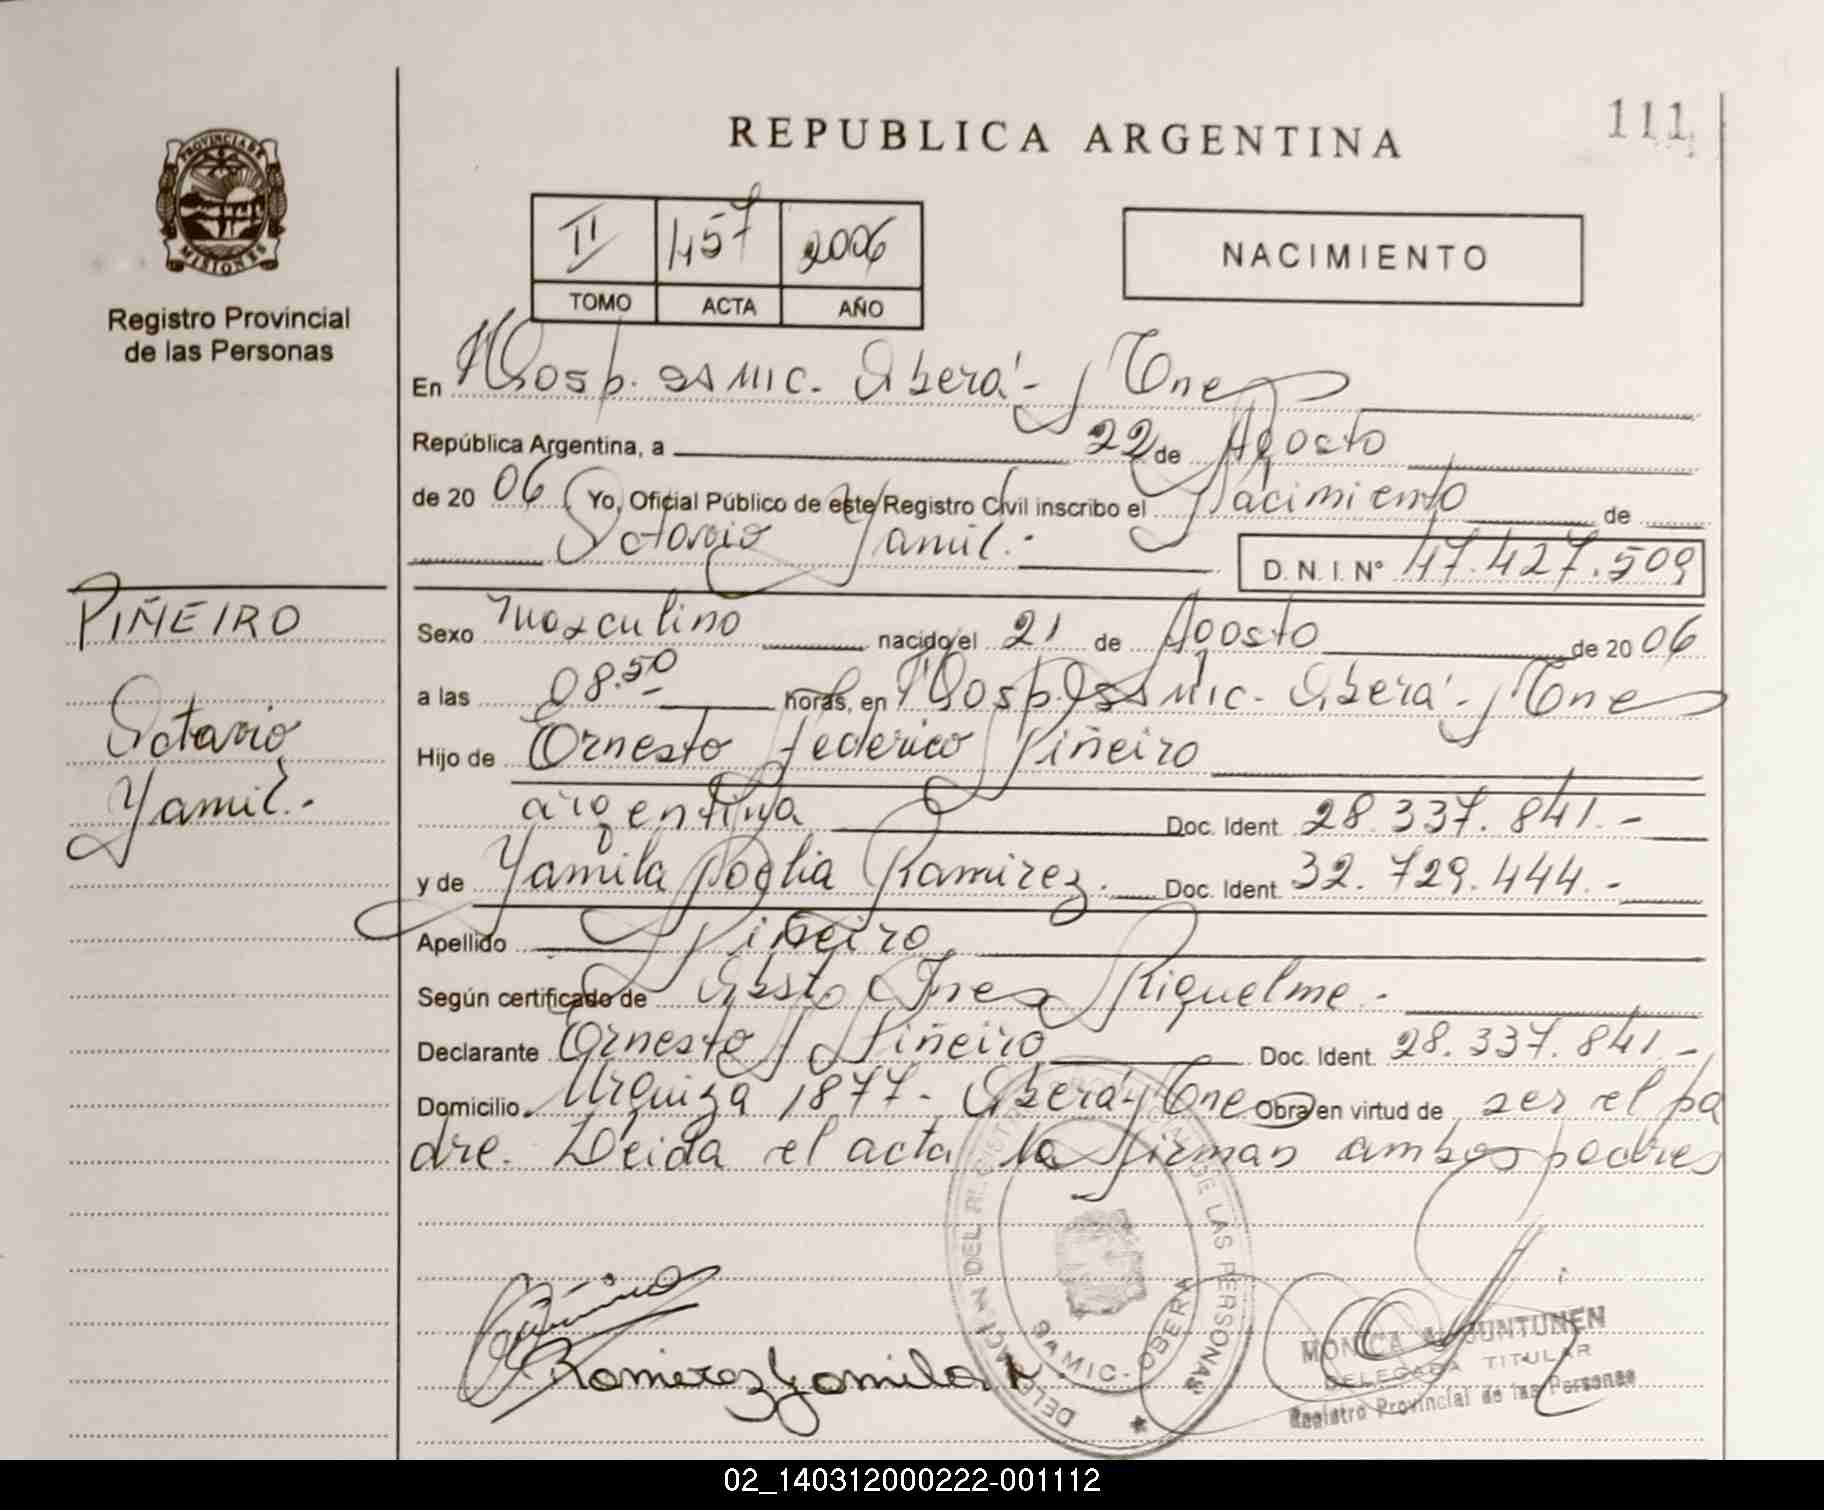 111
REPUBLICA ARGENTINA
PROVINCIA DE
MISIONES
Registro Provincial
de las Personas
II 457 2006
TOMO ACTA AÑO
NACIMIENTO
En Hosp. SAMIC. Oberá - Mnes
República Argentina, a 22 de Agosto
de 20 06 Yo, Oficial Público de este Registro Civil inscribo el Nacimiento de
Octavio Yamil.-
D. N. I. Nº 47.427.509
PIÑEIRO
Octavio
Yamil.-
Sexo Masculino nacido el 21 de Agosto de 20 06
a las 08.50 horas, en Hosp. SAMIC. Oberá - Mnes
Hijo de Ernesto Federico Piñeiro
argentina Doc. Ident. 28.337.841.-
y de Yamila Ramirez. Doc. Ident. 32.729.444.-
Apellido Piñeiro
Según certificado de Obst. Ines Riquelme.-
Declarante Ernesto F. Piñeiro Doc. Ident. 28.337.841.-
Domicilio Urquiza 1877- Oberá - Mnes Obra en virtud de ser el pa
dre. Leida el acta la firman ambos padres
Ramirez Yamila
DELEGACION DEL REGISTRO PROVINCIAL DE LAS PERSONAS
SAMIC - OBERA
MONICA JUNTUNEN
DELEGADA TITULAR
Registro Provincial de las Personas
02_140312000222-001112